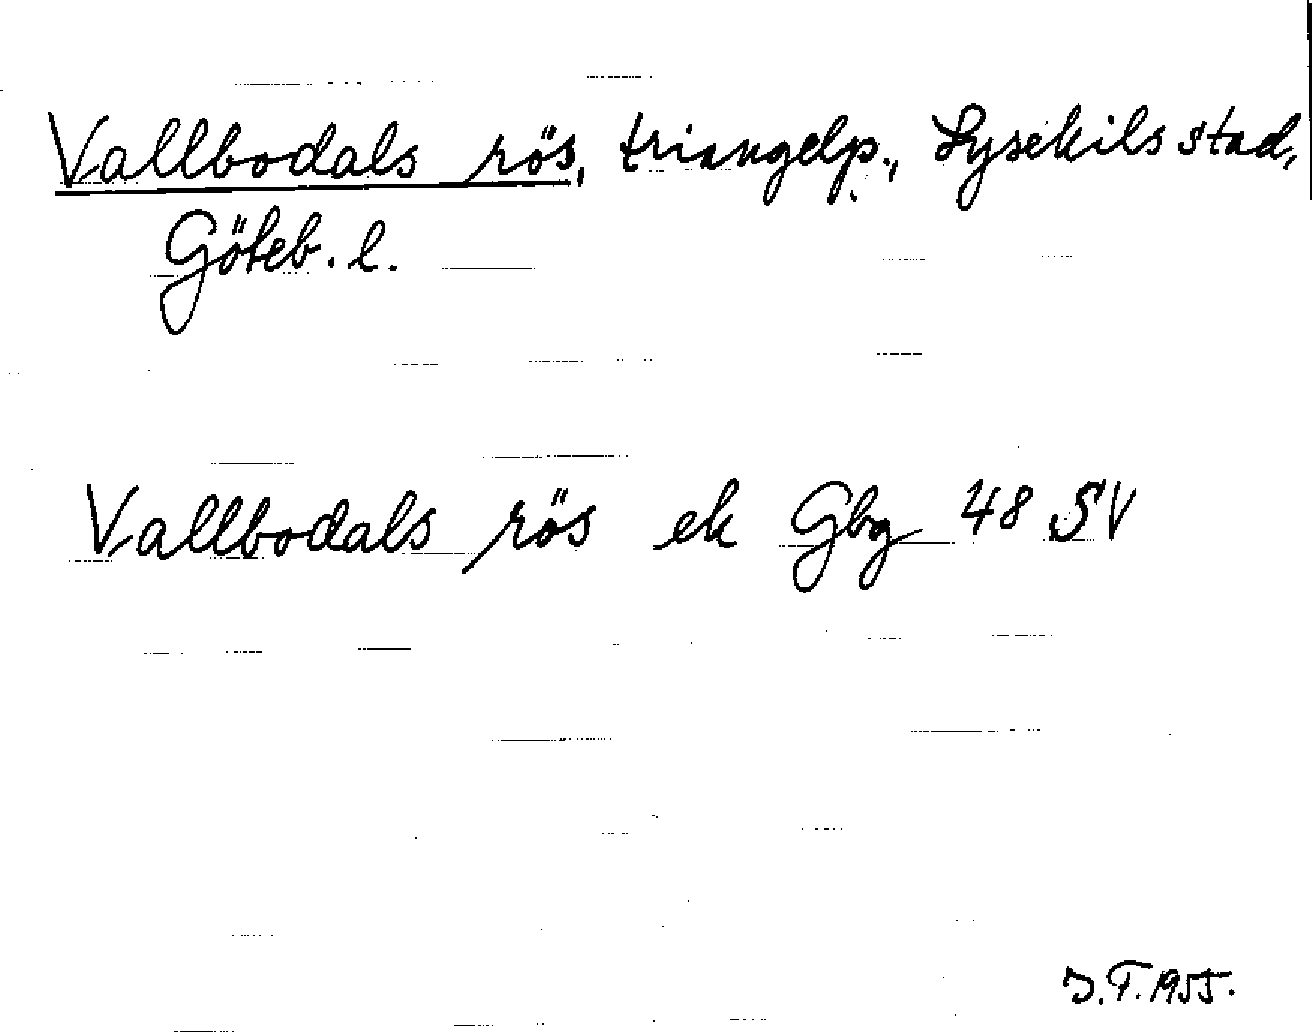 Vallbodals rös, triangelp., Lysekils stad,
Göteb. l.
Vallbodals rös ek Gbg 48 SV
J.T. 1955.